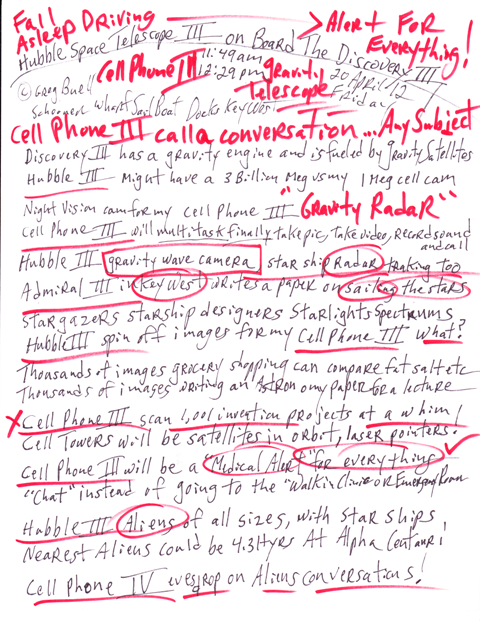 Fall
Asleep Driving
> Alert For
Everything!
Hubble Space Telescope III on Board The Discovery III
Cell Phone III
11:49am
12:29pm
gravity
Telescope
20 April 12
Friday
© Greg Buell
Schooner Wharf Sail Boat Docks Key West
Cell Phone III call a conversation... Any Subject
Discovery III has a gravity engine and is fueled by gravity Satellites
Hubble III Might have a 3 Billion Meg vs my 1 Meg cell cam
Night Vision cam for my cell Phone III "Gravity Radar"
Cell Phone III will multitask finally take pic, Take video, Record sound
and call
Hubble III gravity wave camera star ship Radar traking too
Admiral III in Key West writes a paper on sailing the stars
Stargazers starship designers Starlights Spectrums
Hubble III spin off images for my Cell Phone III what?
Thousands of images grocery shopping can compare fat salt etc
Thousands of images writing an Astronomy paper for a lecture
X Cell Phone III scan 1,001 invention projects at a whim!
Cell Towers will be satellites in orbit, laser pointers!
Cell Phone III will be a "Medical Alert" "for everything ✓
"Chat" instead of going to the "Walk in Clinic or Emergency Room
Hubble III Aliens of all sizes, with star ships
Nearest Aliens could be 4.3 Lyrs At Alpha Centauri!
Cell Phone IV evesdrop on Aliens conversations!